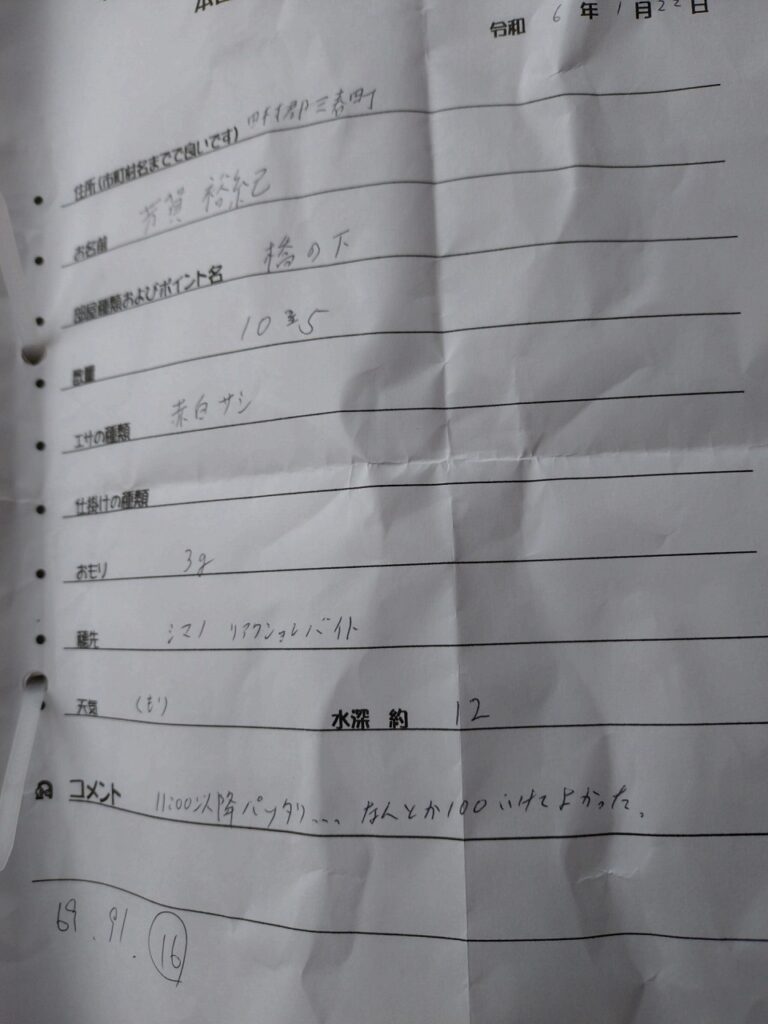 令和 6 年 1 月 22 日
住所(市町村名まででで良いです) 田村郡三春町
お名前 芳賀 裕紀
部屋種類およびポイント名 橋の下
数量 105
エサの種類 赤白サシ
仕掛けの種類
おもり 3g
穂先 シマノ リアクションバイト
天気 くもり 水深 約 12
コメント 11:00以降パッタリ... なんとか100いけてよかった。
69. 91. 16